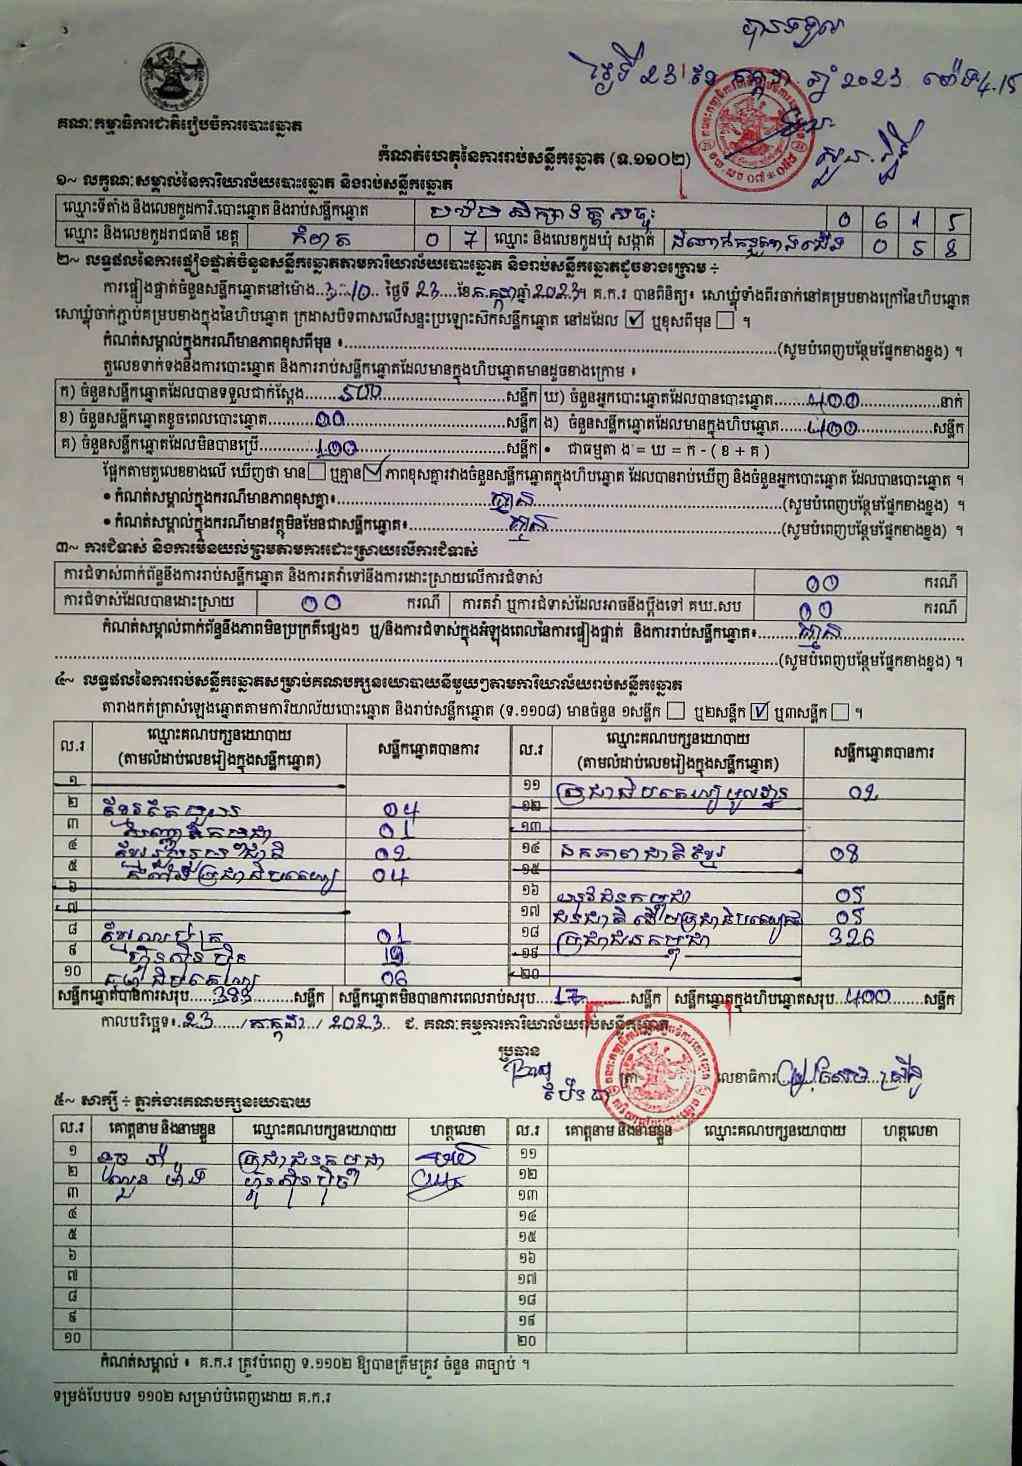 បានទទួល
ថ្ងៃទី 23 ខែ កក្កដា ឆ្នាំ 2023 ម៉ោង 4.15
គណៈកម្មាធិការជាតិរៀបចំការបោះឆ្នោត
កំណត់ហេតុនៃការរាប់សន្លឹកឆ្នោត (ទ.១១០២)
១~ លក្ខណៈសម្គាល់នៃការិយាល័យបោះឆ្នោត និងរាប់សន្លឹកឆ្នោត
ឈ្មោះទីតាំង និងលេខកូដការិ.បោះឆ្នោត និងរាប់សន្លឹកឆ្នោត 0 6 1 5
ឈ្មោះ និងលេខកូដរាជធានី ខេត្ត កំពត 0 7 ឈ្មោះ និងលេខកូដឃុំ សង្កាត់ 0 5 8
២~ លទ្ធផលនៃការផ្ទៀងផ្ទាត់ចំនួនសន្លឹកឆ្នោតតាមការិយាល័យបោះឆ្នោត និងរាប់សន្លឹកឆ្នោតដូចខាងក្រោម ÷
ការផ្ទៀងផ្ទាត់ចំនួនសន្លឹកឆ្នោតនៅម៉ោង..3:10.. ថ្ងៃទី 23 ...ខែ កក្កដា ឆ្នាំ 2023។ គ.ក.រ បានពិនិត្យ៖ សោឃ្លុំទាំងពីរចាក់នៅគម្របខាងក្រៅនៃហិបឆ្នោត
សោឃ្លុំចាក់ភ្ជាប់គម្របខាងក្នុងនៃហិបឆ្នោត ក្រដាសបិទពាសលើសន្ទះប្រឡោះស៊កសន្លឹកឆ្នោត នៅដដែល ☑ ឬខុសពីមុន ☐ ។
កំណត់សម្គាល់ក្នុងករណីមានភាពខុសពីមុន ៖..........(សូមបំពេញបន្ថែមផ្នែកខាងខ្នង) ។
តួលេខទាក់ទងនឹងការបោះឆ្នោត និងការរាប់សន្លឹកឆ្នោតដែលមានក្នុងហិបឆ្នោតមានដូចខាងក្រោម ៖
ក) ចំនួនសន្លឹកឆ្នោតដែលបានទទួលជាក់ស្តែង....500....សន្លឹក ឃ) ចំនួនអ្នកបោះឆ្នោតដែលបានបោះឆ្នោត....400....នាក់
ខ) ចំនួនសន្លឹកឆ្នោតខូចពេលបោះឆ្នោត....00....សន្លឹក ង) ចំនួនសន្លឹកឆ្នោតដែលមានក្នុងហិបឆ្នោត....400....សន្លឹក
គ) ចំនួនសន្លឹកឆ្នោតដែលមិនបានប្រើ....100....សន្លឹក • ជាធម្មតា ង = ឃ = ក - ( ខ + គ )
ផ្អែកតាមតួលេខខាងលើ ឃើញថា មាន ☐ ឬគ្មាន ☑ ភាពខុសគ្នារវាងចំនួនសន្លឹកឆ្នោតក្នុងហិបឆ្នោត ដែលបានរាប់ឃើញ និងចំនួនអ្នកបោះឆ្នោត ដែលបានបោះឆ្នោត ។
• កំណត់សម្គាល់ក្នុងករណីមានភាពខុសគ្នា៖....គ្មាន....(សូមបំពេញបន្ថែមផ្នែកខាងខ្នង) ។
• កំណត់សម្គាល់ក្នុងករណីមានវត្ថុមិនមែនជាសន្លឹកឆ្នោត៖....គ្មាន....(សូមបំពេញបន្ថែមផ្នែកខាងខ្នង) ។
៣~ ការជំទាស់ និងការមិនយល់ព្រមតាមការដោះស្រាយលើការជំទាស់
ការជំទាស់ពាក់ព័ន្ធនឹងការរាប់សន្លឹកឆ្នោត និងការតវ៉ាទៅនឹងការដោះស្រាយលើការជំទាស់ 00 ករណី
ការជំទាស់ដែលបានដោះស្រាយ 00 ករណី ការតវ៉ា ឬការជំទាស់ដែលអាចនឹងប្តឹងទៅ គឃ.សប 00 ករណី
កំណត់សម្គាល់ពាក់ព័ន្ធនឹងភាពមិនប្រក្រតីផ្សេងៗ ឬ/និងការជំទាស់ក្នុងអំឡុងពេលនៃការផ្ទៀងផ្ទាត់ និងការរាប់សន្លឹកឆ្នោត៖....គ្មាន....
..........(សូមបំពេញបន្ថែមផ្នែកខាងខ្នង) ។
៤~ លទ្ធផលនៃការរាប់សន្លឹកឆ្នោតសម្រាប់គណបក្សនយោបាយនីមួយៗតាមការិយាល័យរាប់សន្លឹកឆ្នោត
តារាងកត់ត្រាសំឡេងឆ្នោតតាមការិយាល័យបោះឆ្នោត និងរាប់សន្លឹកឆ្នោត (ទ.១១០៨) មានចំនួន ១សន្លឹក ☐ ឬ២សន្លឹក ☑ ឬ៣សន្លឹក ☐ ។
ល.រ ឈ្មោះគណបក្សនយោបាយ (តាមលំដាប់លេខរៀងក្នុងសន្លឹកឆ្នោត) សន្លឹកឆ្នោតបានការ ល.រ ឈ្មោះគណបក្សនយោបាយ (តាមលំដាប់លេខរៀងក្នុងសន្លឹកឆ្នោត) សន្លឹកឆ្នោតបានការ
១ ១១ ប្រជាធិបតេយ្យមូលដ្ឋាន 02
២ ខ្មែរតែមួយ 04 ១២
៣ សញ្ជាតិកម្ពុជា 01 ១៣
៤ ខ្មែររួបរួមជាតិ 02 ១៤ ឯកភាពជាតិខ្មែរ 08
៥ សំបុកឃ្មុំ 04 ១៥
៦ ១៦ យុវជនកម្ពុជា 05
៧ ១៧ ជនជាតិដើមប្រជាធិបតេយ្យ 05
៨ 01 ១៨ ប្រជាជនកម្ពុជា 326
៩ ហ៊្វុនស៊ិនប៉ិច 19 ១៩
១០ 06 ២០
សន្លឹកឆ្នោតបានការសរុប....383....សន្លឹក សន្លឹកឆ្នោតមិនបានការពេលរាប់សរុប....17....សន្លឹក សន្លឹកឆ្នោតក្នុងហិបឆ្នោតសរុប..400....សន្លឹក
កាលបរិច្ឆេទ៖ 23 / កក្កដា / 2023 .. ជ. គណៈកម្មការការិយាល័យរាប់សន្លឹកឆ្នោត
ប្រធាន ត្រា លេខាធិការ
៥~ សាក្សី ÷ ភ្នាក់ងារគណបក្សនយោបាយ
ល.រ គោត្តនាម និងនាមខ្លួន ឈ្មោះគណបក្សនយោបាយ ហត្ថលេខា ល.រ គោត្តនាម និងនាមខ្លួន ឈ្មោះគណបក្សនយោបាយ ហត្ថលេខា
១ ប្រជាជនកម្ពុជា ១១
២ ហ៊្វុនស៊ិនប៉ិច ១២
៣ ១៣
៤ ១៤
៥ ១៥
៦ ១៦
៧ ១៧
៨ ១៨
៩ ១៩
១០ ២០
កំណត់សម្គាល់ ៖ គ.ក.រ ត្រូវបំពេញ ទ.១១០២ ឱ្យបានត្រឹមត្រូវ ចំនួន ៣ច្បាប់ ។
ទម្រង់បែបបទ ១១០២ សម្រាប់បំពេញដោយ គ.ក.រ